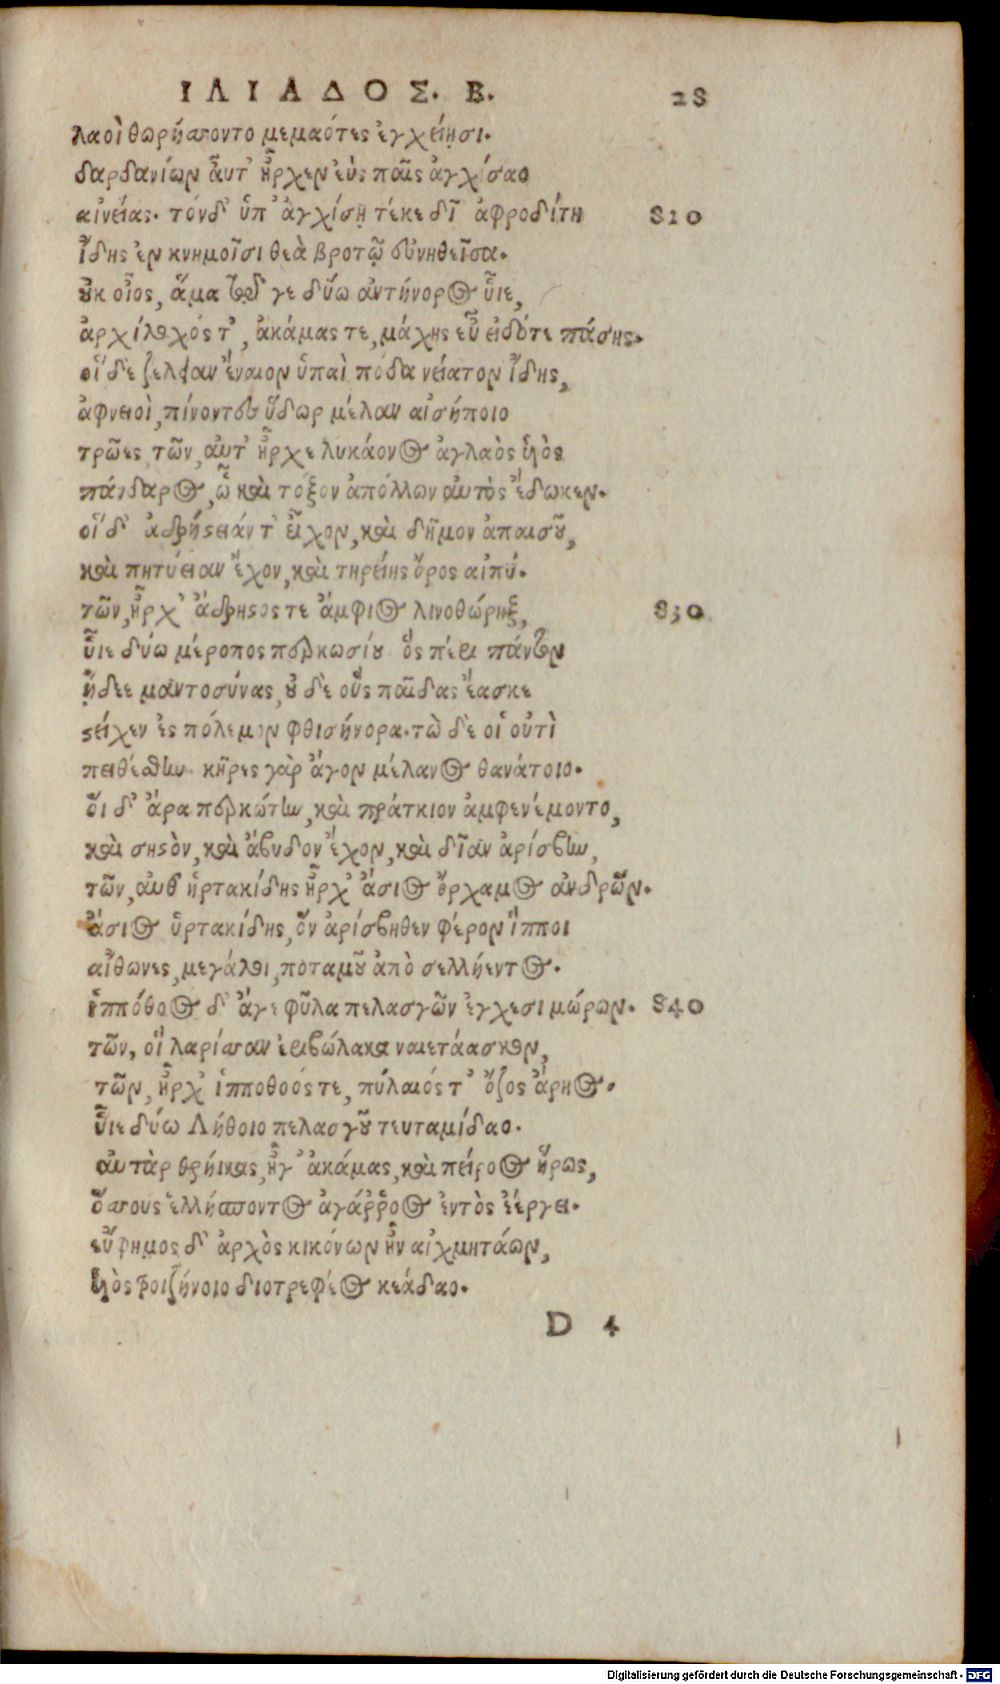 ΙΛΙΑΔΟΣ. Β. 28
λαοὶ θωρήσσοντο μεμαότες ἐγχείῃσι.
δαρδανίων αὖτ' ἦρχεν ἐῢς παῖς ἀγχίσαο
αἰνείας. τόνδ' ὑπ' ἀγχίσῃ τέκε δῖ ἀφροδίτη 820
ἴδης ἐν κνημοῖσι θεὰ βροτῷ εὐνηθεῖσα.
οὐκ οἶος, ἅμα τῷδε γε δύω ἀντήνορος υἷε,
ἀρχίλοχός τ', ἀκάμας τε, μάχης εὖ εἰδότε πάσης.
οἳ δὲ ζέλειαν ἔναιον ὑπαὶ πόδα νείατον ἴδης,
ἀφνειοὶ, πίνοντες ὕδωρ μέλαν αἰσήποιο
τρῶες, τῶν, αὖτ' ἦρχε λυκάονος ἀγλαὸς υἱὸς
πάνδαρος, ᾧ καὶ τόξον ἀπόλλων αὐτὸς ἔδωκεν.
οἳ δ' ἀδρήστειάν τ' εἶχον, καὶ δῆμον ἀπαισοῦ,
καὶ πητύειαν ἔχον, καὶ τηρείης ὄρος αἰπύ.
τῶν, ἦρχ' ἄδρηστος τε ἄμφιος λινοθώρηξ, 830
υἷε δύω μέροπος περκωσίου ὃς πέρι πάντων
ᾔδεε μαντοσύνας, οὐ δὲ οὓς παῖδας ἔασκε
στείχεν ἐς πόλεμον φθισήνορα. τὼ δέ οἱ οὔτι
πειθέσθην. κῆρες γὰρ ἄγον μέλανος θανάτοιο.
οἳ δ' ἄρα περκώτην, καὶ πράτκιον ἀμφενέμοντο,
καὶ σηστὸν, καὶ ἄβυδον ἔχον, καὶ δῖαν ἀρίσβην,
τῶν, αὖθ ὑρτακίδης ἦρχ' ἄσιος ὄρχαμος ἀνδρῶν.
ἄσιος ὑρτακίδης, ὃν ἀρίσβηθεν φέρον ἵπποι
αἴθωνες, μεγάλοι, ποταμοῦ ἀπὸ σελλήεντος.
ἱππόθοος δ' ἄγε φῦλα πελασγῶν ἐγχεσιμώρων. 840
τῶν, οἳ λαρίσσαν ἐριβώλακα ναιετάασκον,
τῶν, ἦρχ' ἱπποθοός τε, πύλαιός τ' ὄζος ἄρηος.
υἷε δύω Λήθοιο πελασγοῦ τευταμίδαο.
αὐτὰρ θρήικας, ἦγ' ἀκάμας, καὶ πείροος ἥρως,
ὅσσους ἑλλήσποντος ἀγάρροος ἐντὸς ἐέργει.
εὔφημος δ' ἀρχὸς κικόνων ἦν αἰχμητάων,
υἱὸς τροιζήνοιο διοτρεφέος κεάδαο.
D 4
Digitalisierung gefördert durch die Deutsche Forschungsgemeinschaft - DFG